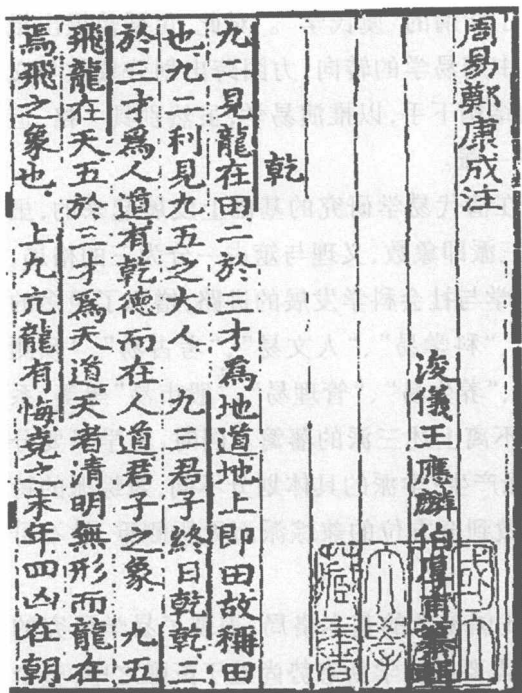 周易鄭康成注
浚儀王應麟伯厚甫纂輯
乾
九二見龍在田二於三才為地道地上即田故稱田
也九二利見九五之大人 九三君子終日乾乾三
於三才爲人道有乾德而在人道君子之象 九五
飛龍在天五於三才爲天道天者清明無形而龍在
焉飛之象也 上九亢龍有悔堯之末年四凶在朝